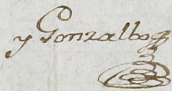 y Gonzalbo